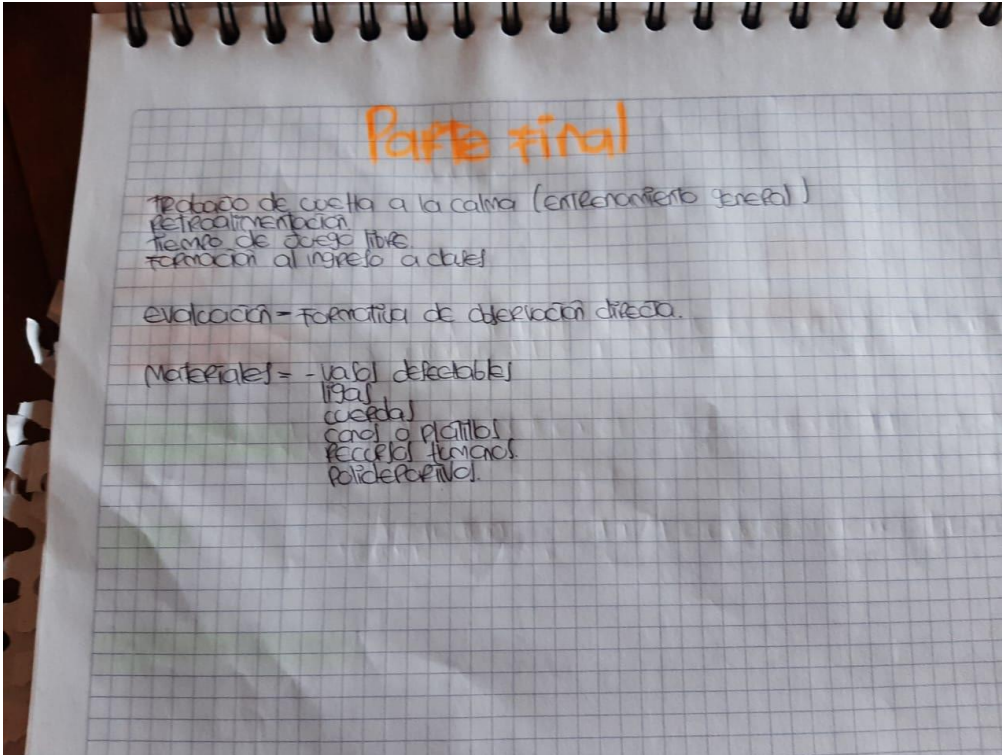 Parte Final
Trabajo de vuelta a la calma (entrenamiento general)
Retroalimentación
Tiempo de juego libre
Formación al ingreso a clases
evaluación = Formativa de observación directa.
Materiales = - vasos defectables
ligas
cuerdas
conos o platillos
Recursos Humanos.
Polideportivo.